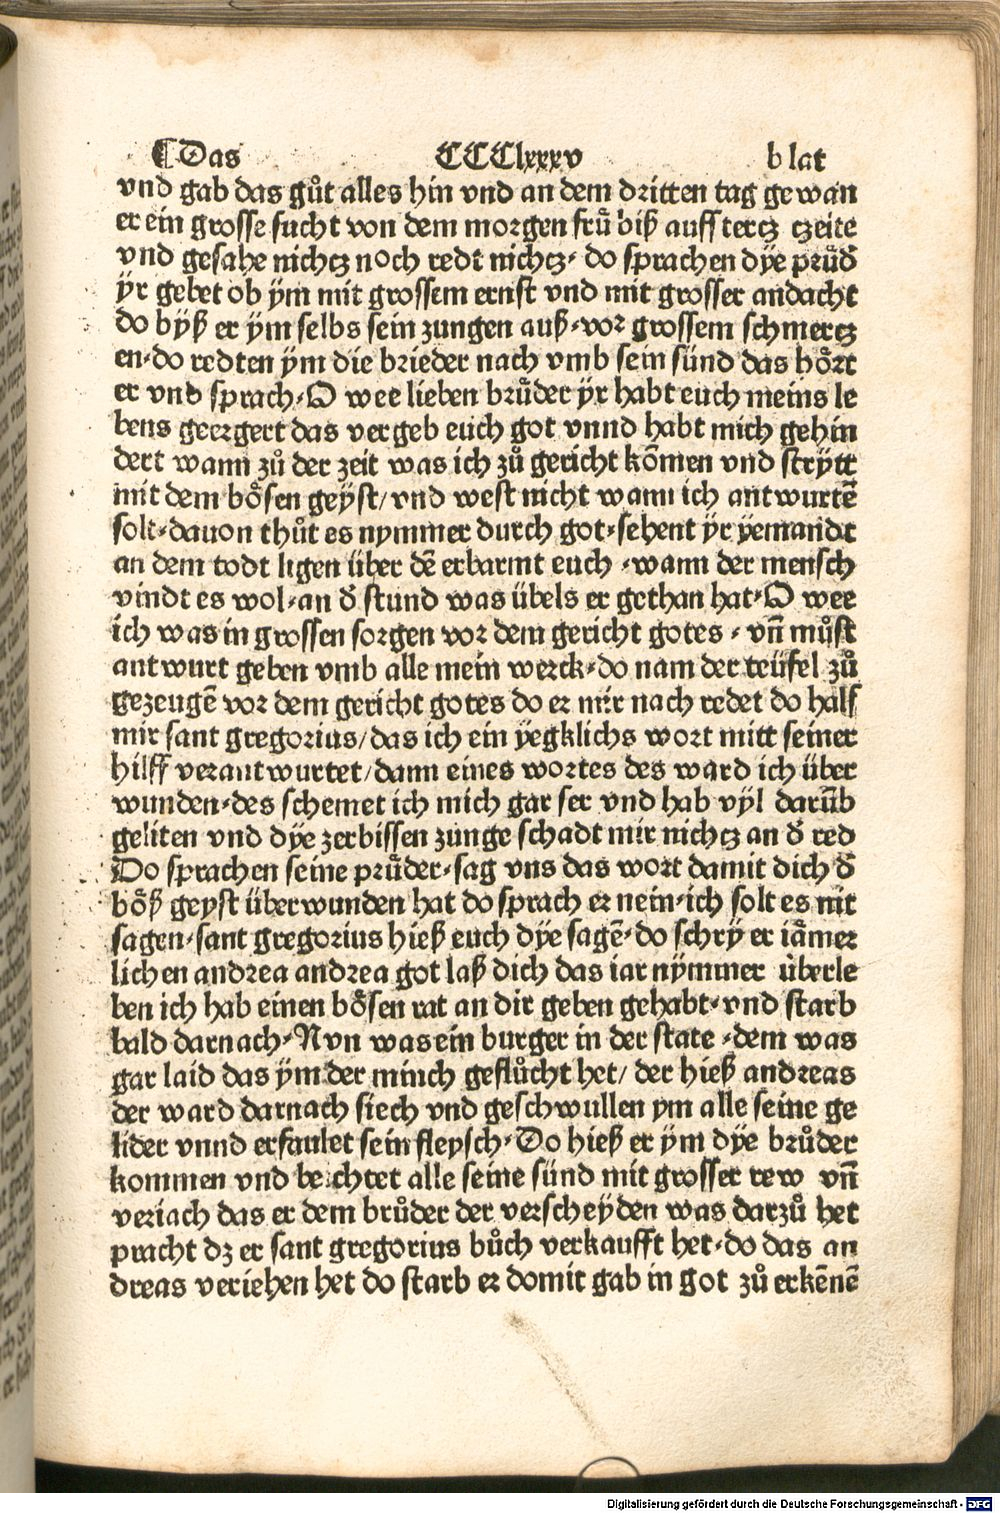 ⸿ Das CCClxxxv blat
vnd gab das gůt alles hin vnd an dem dritten tag gewan
er ein grosse sucht von dem morgen frů biß auff tertz tzeite
vnd gesahe nichtz noch redt nichtz⸗ do sprachen dÿe průd̕
ÿr gebet ob ÿm mit grossem ernst vnd mit grosser andacht
do bÿß er ÿm selbs sein zungen auß⸗vor grossem schmertz
en⸗do redten ÿm die brieder nach vmb sein sünd das hőrt
er vnd sprach⸗O wee lieben brůder ÿr habt euch meins le
bens geergert das vergeb euch got vnnd habt mich gehin
dert wann zů der zeit was ich zů gericht kōmen vnd strÿtt
mit dem bősen geÿst/vnd west nicht wann ich antwurtē
solt⸗dauon thůt es nymmer durch got⸗sehent ÿr ÿemandt
an dem todt ligen über dē erbarmt euch ⸗wann der mensch
vindt es wol⸗an d̕ stund was übels er gethan hat⸗O wee
ich was in grossen sorgen vor dem gericht gotes ⸗ vñ můst
antwurt geben vmb alle mein werck⸗do nam der teüfel zů
gezeugē vor dem gericht gotes do er mir nach redet do half
mir sant gregorius/das ich ein ÿegklichs wort mitt seiner
hilff verantwurtet/dann eines wortes des ward ich über
wunden⸗des schemet ich mich gar ser vnd hab vÿl darūb
geliten vnd dÿe zerbissen zunge schadt mir nichtz an d̕ red
Do sprachen seine průder⸗sag vns das wort damit dich d̕
bőß geyst überwunden hat do sprach er nein⸗ich solt es nit
sagen⸗sant gregorius hieß euch dÿe sagē⸗do schrÿ er iāmer
lichen andrea andrea got laß dich das iar nÿmmer überle
ben ich hab einen bősen rat an dir geben gehabt⸗vnd starb
bald darnach⸗Nvn was ein burger in der state ⸗dem was
gar laid das ÿm der minch geflůcht het/ der hieß andreas
der ward darnach siech vnd geschwullen ym alle seine ge
lider vnnd erfaulet sein fleysch⸗Do hieß er ÿm dÿe brůder
kommen vnd beichtet alle seine sünd mit grosser rew vñ
veriach das er dem brůder der verscheÿden was darzů het
pracht dz er sant gregorius bůch verkaufft het⸗do das an
dreas veriehen het do starb er domit gab in got zů erkēnē
Digitalisierung gefördert durch die Deutsche Forschungsgemeinschaft - DFG